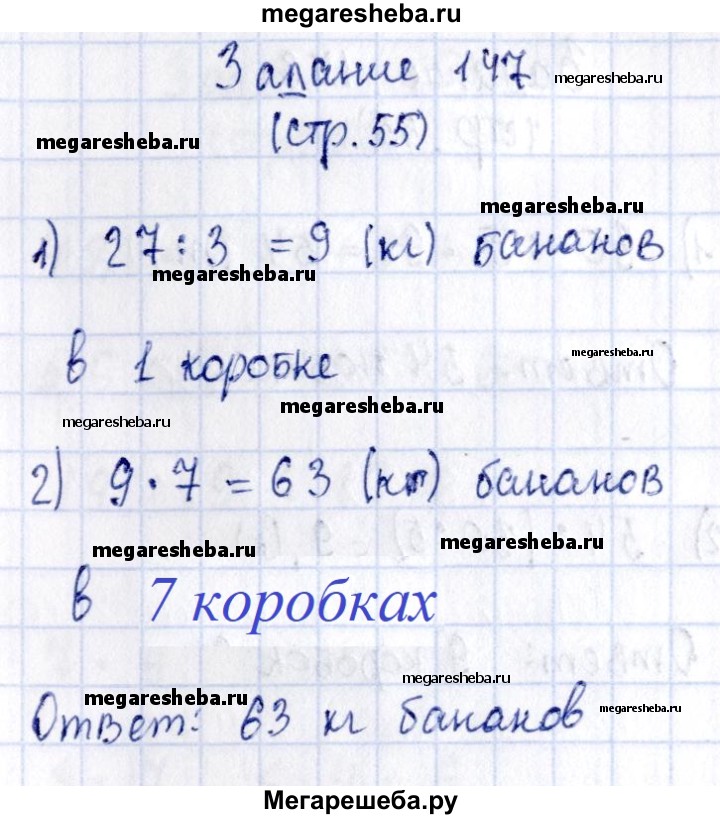 megaresheba.ru
Задание 147
megaresheba.ru
megaresheba.ru
(стр. 55)
megaresheba.ru
1) 27 : 3 = 9 (кг) бананов
megaresheba.ru
megaresheba.ru
в 1 коробке
megaresheba.ru
megaresheba.ru
2) 9 · 7 = 63 (кг) бананов
megaresheba.ru
megaresheba.ru
megaresheba.ru
в 7 коробках
megaresheba.ru
megaresheba.ru
megaresheba.ru
Ответ: 63 кг бананов
Мегарешеба.ру